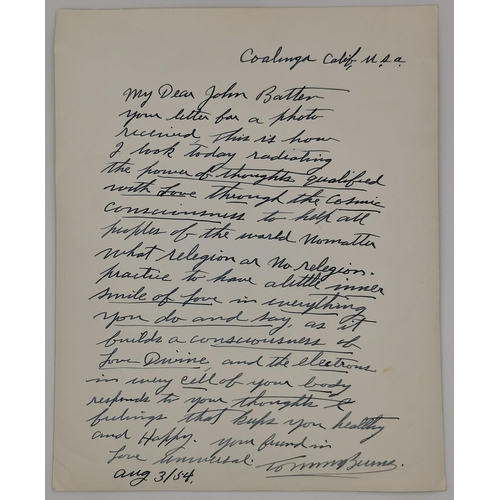 Coalinga Calif, U.S.A.
My Dear John Batten
your letter for a photo
received, this is how
I look today radiating
the power of thoughts qualified
with Love through the Cosmic
consciousness to help all
peoples of the world Nomatter
what relegion or No relegion.
practice to have a little inner
smile of love in everything
you do and say, as it
builds a consciousness of
Love Divine, and the electrons
in every cell of your body
responds to your thoughts &
feelings that keeps you healthy
and Happy. your friend in
Love universal. Tommy Burns.
Aug 3/54.